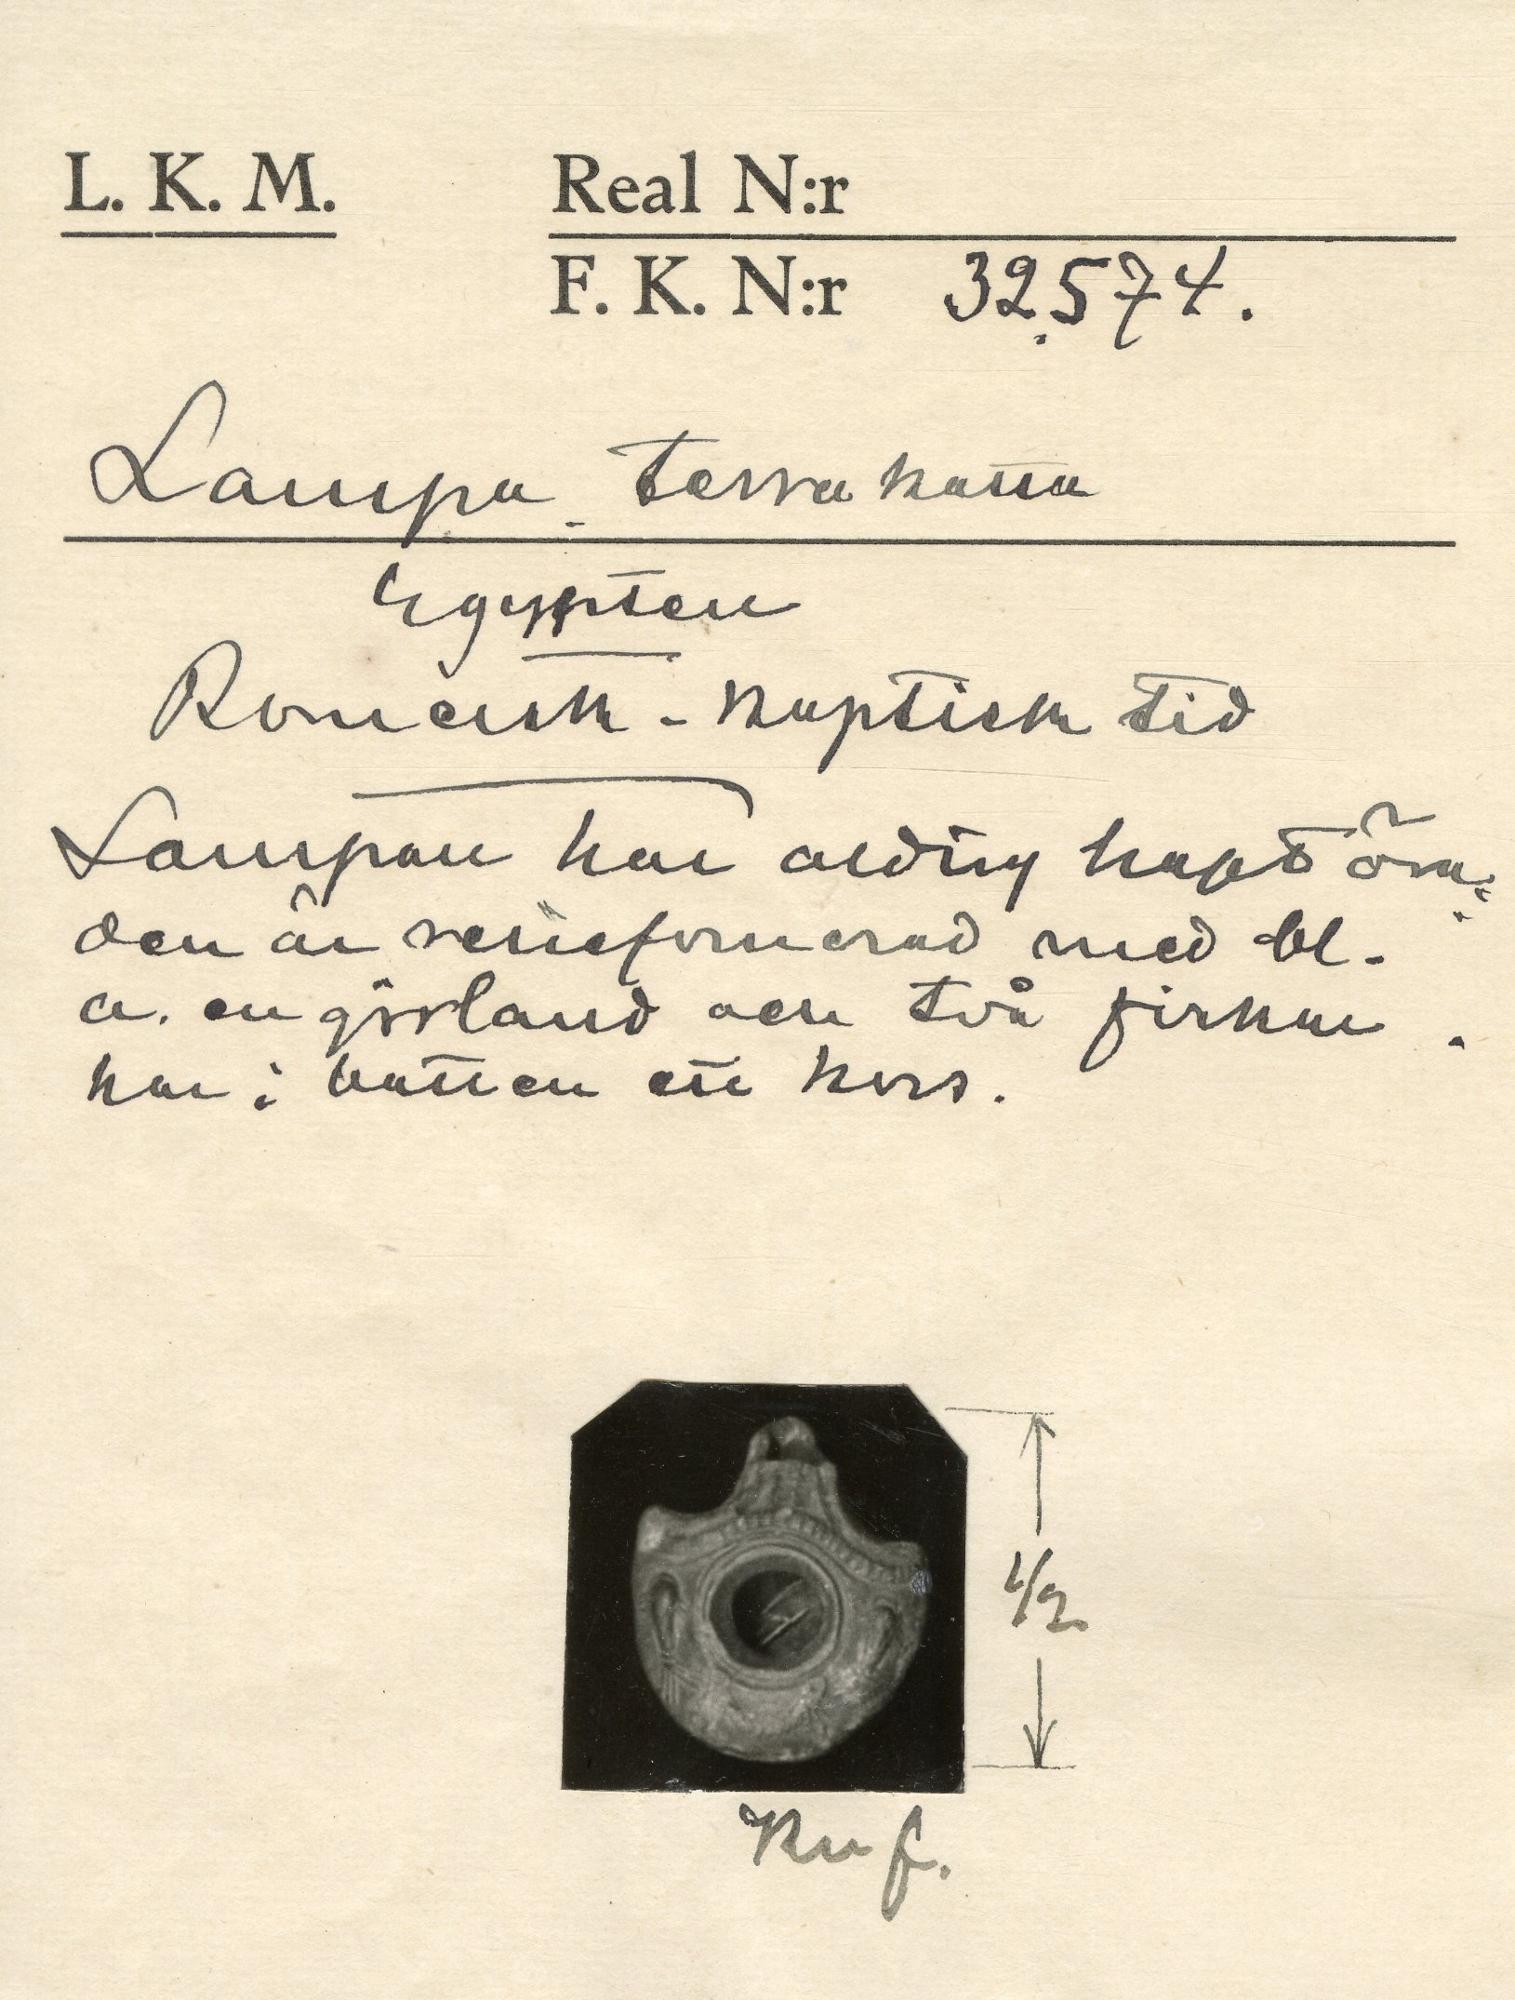 L. K. M.
Real N:r
F. K. N:r 32,574.
Lampa. terrakotta
Egypten
Romersk - koptisk tid
Lampan har aldrig haft öra;
den är reliefornerad med bl.
a. en girland och två firkar.
har i botten ett kors.
1/2